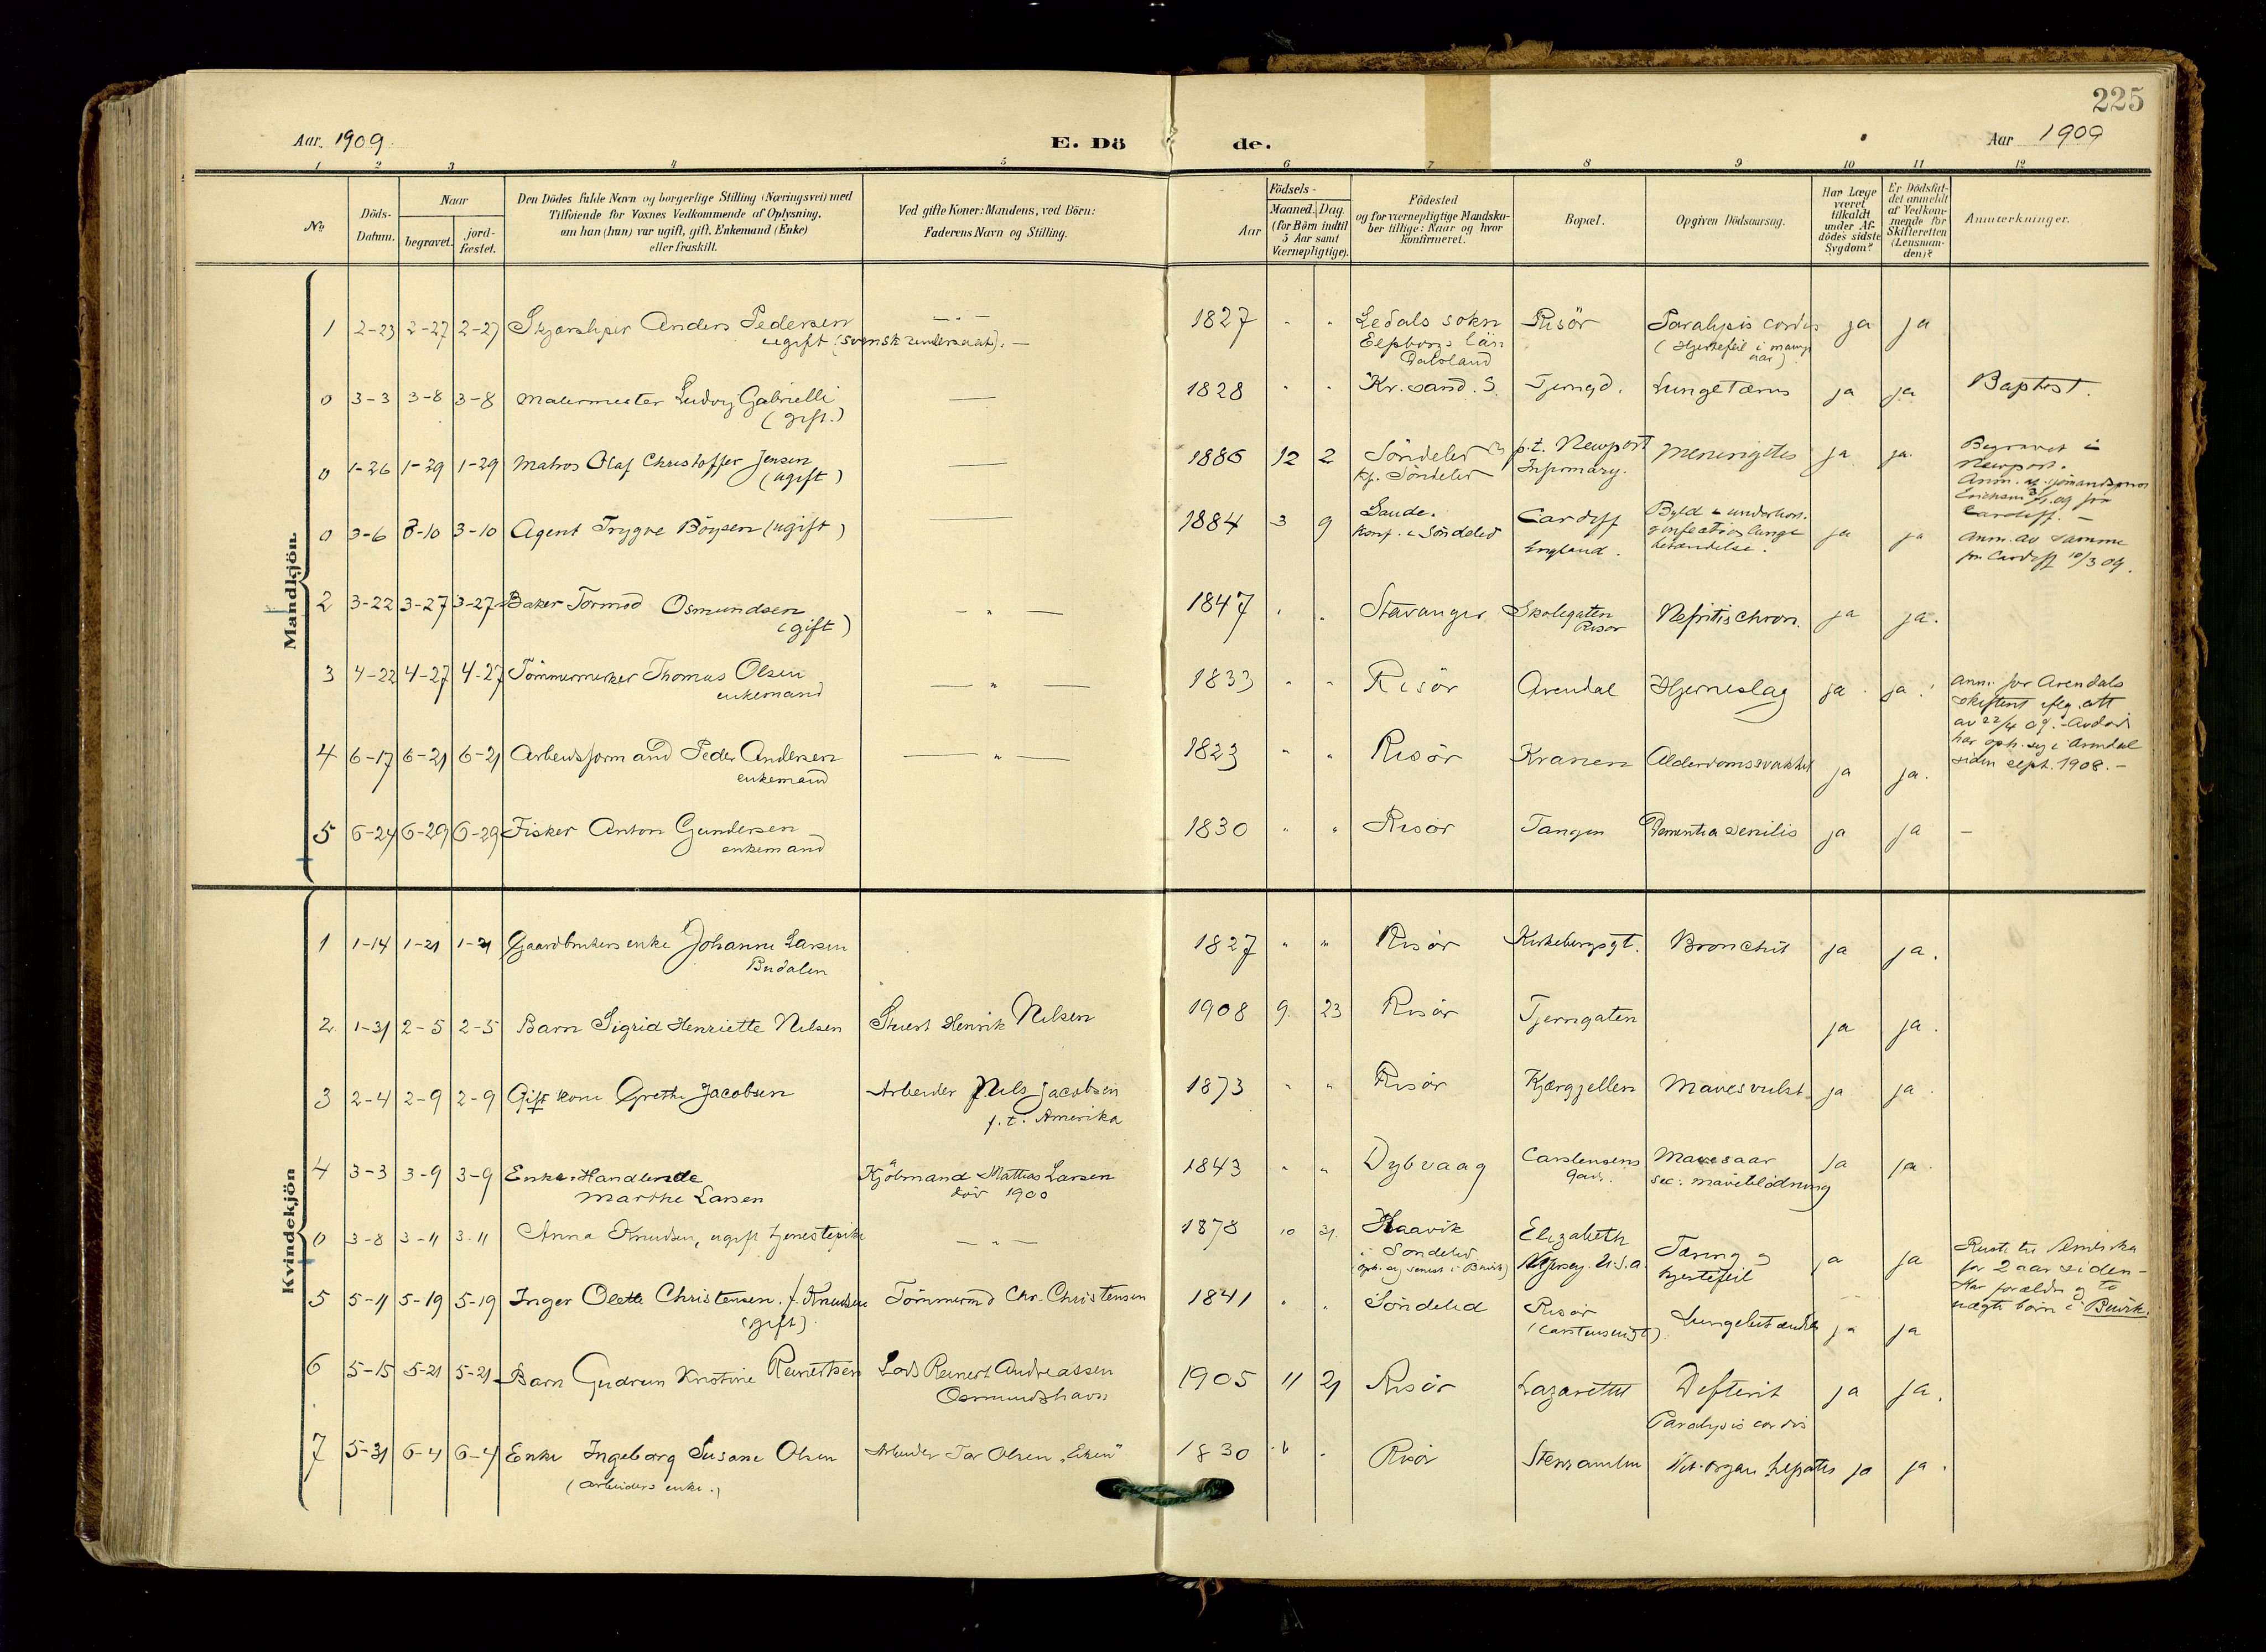 225
Aar. 1909.
E. Dö
de.
Aar 1909
1 2 3 4 5 6 7 8 9 10 11 12
No
Döds-
Datum.
Naar
begravet.
jord-
fæstet.
Den Dödes fulde Navn og borgerlige Stilling (Næringsvei) med
Tilføiende for Voxnes Vedkommende af Oplysning,
om han (hun) var ugift, gift, Enkemand (Enke)
eller fraskilt.
Ved gifte Koner: Mandens, ved Börn:
Faderens Navn og Stilling.
Födsels-
Aar
Maaned.
Dag.
(for Börn indtil
5 Aar samt
Værnepligtige).
Födested
og for værnepligtige Mandska-
ber tillige: Naar og hvor
konfirmeret.
Bopæl.
Opgiven Dödsaarsag.
Har Læge
været
tilkaldt
under Af-
dödes sidste
Sygdom?
Er Dödsfal-
det anmeldt
af Vedkom-
mende for
Skifteretten
(Lensman-
den)?
Anmerkninger.
Mandkjön.
1 2-23 2-27 2-27 Skjærsliper Anders Pedersen — " — 1827 " " Ledals sokn Risör Paralysis cordis ja ja
ugift (svensk undersaat). — Elfsborgs län (Hjertefeil i mange
Dalsland aar)
0 3-3 3-8 3-8 Malermester Ludvig Gabrielli — 1828 " " Kr.sand. S. Tjerngd. Lungetæring ja ja Baptist.
(gift.)
0 1-26 1-29 1-29 Matros Olaf Christoffer Jensen — 1886 12 2 Söndeled p.t. Newport Meningites ja ja. Begravet i
(ugift) Kf. Söndeled Infirmary. Newport.
Anm. af sjømandspræst
Cardiff. —
0 3-6 3-10 3-10 Agent Trygve Böysen (ugift) — 1884 3 9 Sande. Cardiff Byld ja ja Anm. av samme
Konf. i Söndeled England. betændelse. fra Cardiff 10/3 09.
2 3-22 3-27 3-27 Baker Tormod Osmundsen — " — 1847 " " Stavanger Skolegaten Nefritis chron. ja ja.
(gift) Risör
3 4-22 4-27 4-27 Tömmermerker Thomas Olsen — " — 1833 " " Risör Arendal Hjerneslag ja ja. Anm. for Arendals
enkemand skifteret iflg. att
av 22/4 09. Avdöde
har oph. sig i Arendal
siden sept. 1908. —
4 6-17 6-21 6-21 Arbeidsformand Peder Andersen — " — 1823 " " Risör Kranen Alderdomssvakhet ja ja.
enkemand
5 6-24 6-29 6-29 Fisker Anton Gundersen 1830 " " Risör Tangen Dementia senilis ja ja —
enkemand
Kvindekjön
1 1-14 1-21 1-21 Gaardbrukers enke Johanne Larsen 1827 " " Risör Kirkebergsgt. Bronchit ja ja.
Budalen
2 1-31 2-5 2-5 Barn Sigrid Henriette Nilsen Stuert Henrik Nilsen 1908 9. 23 Risör Tjerngaten ja ja.
3 2-4 2-9 2-9 Gift kone Grethe Jacobsen Arbeider Nils Jacobsen 1873 " " Risör Kjærgjellen Mavesvulst ja ja.
f.t. Amerika
4 3-3 3-9 3-9 Enke Handlende Kjöbmand Mathias Larsen 1843 " " Dybvaag Carstensens Mavesaar ja ja.
Marthe Larsen död 1900 gaard. sec: maveblödning
0 3-8 3-11 3-11 Anna Knudsen, ugift tjenestepike — " — 1878 10 31. Haavik Elizabeth Tæring og ja ja Reiste til Amerika
i Söndeled N. Jersey. U.S.A. hjertefeil for 2 aar siden —
(oph. sig senest i Barvik) Har forældre og to
uægte börn i Barvik.
5 5-11 5-19 5-19 Inger Olette Christensen f. Knudsen Tömmermd Chr. Christensen 1841 " " Söndeled Risör Lungebetændelse ja ja
(gift) (Carstensensgt)
6 5-15 5-21 5-21 Barn Gudrun Kristine Reinertsen Lods Reinert Andreassen 1905 11 21 Risör Lazarettet Difterit ja ja.
Osmundshavn Paralysis cordis
7 5-31 6-4 6-4 Enke Ingeborg Susane Olsen Arbeider Tar Olsen „Eken" 1830 " " Risör Stenramlen Vit. organ hepatis ja ja.
(arbeiders enke.)